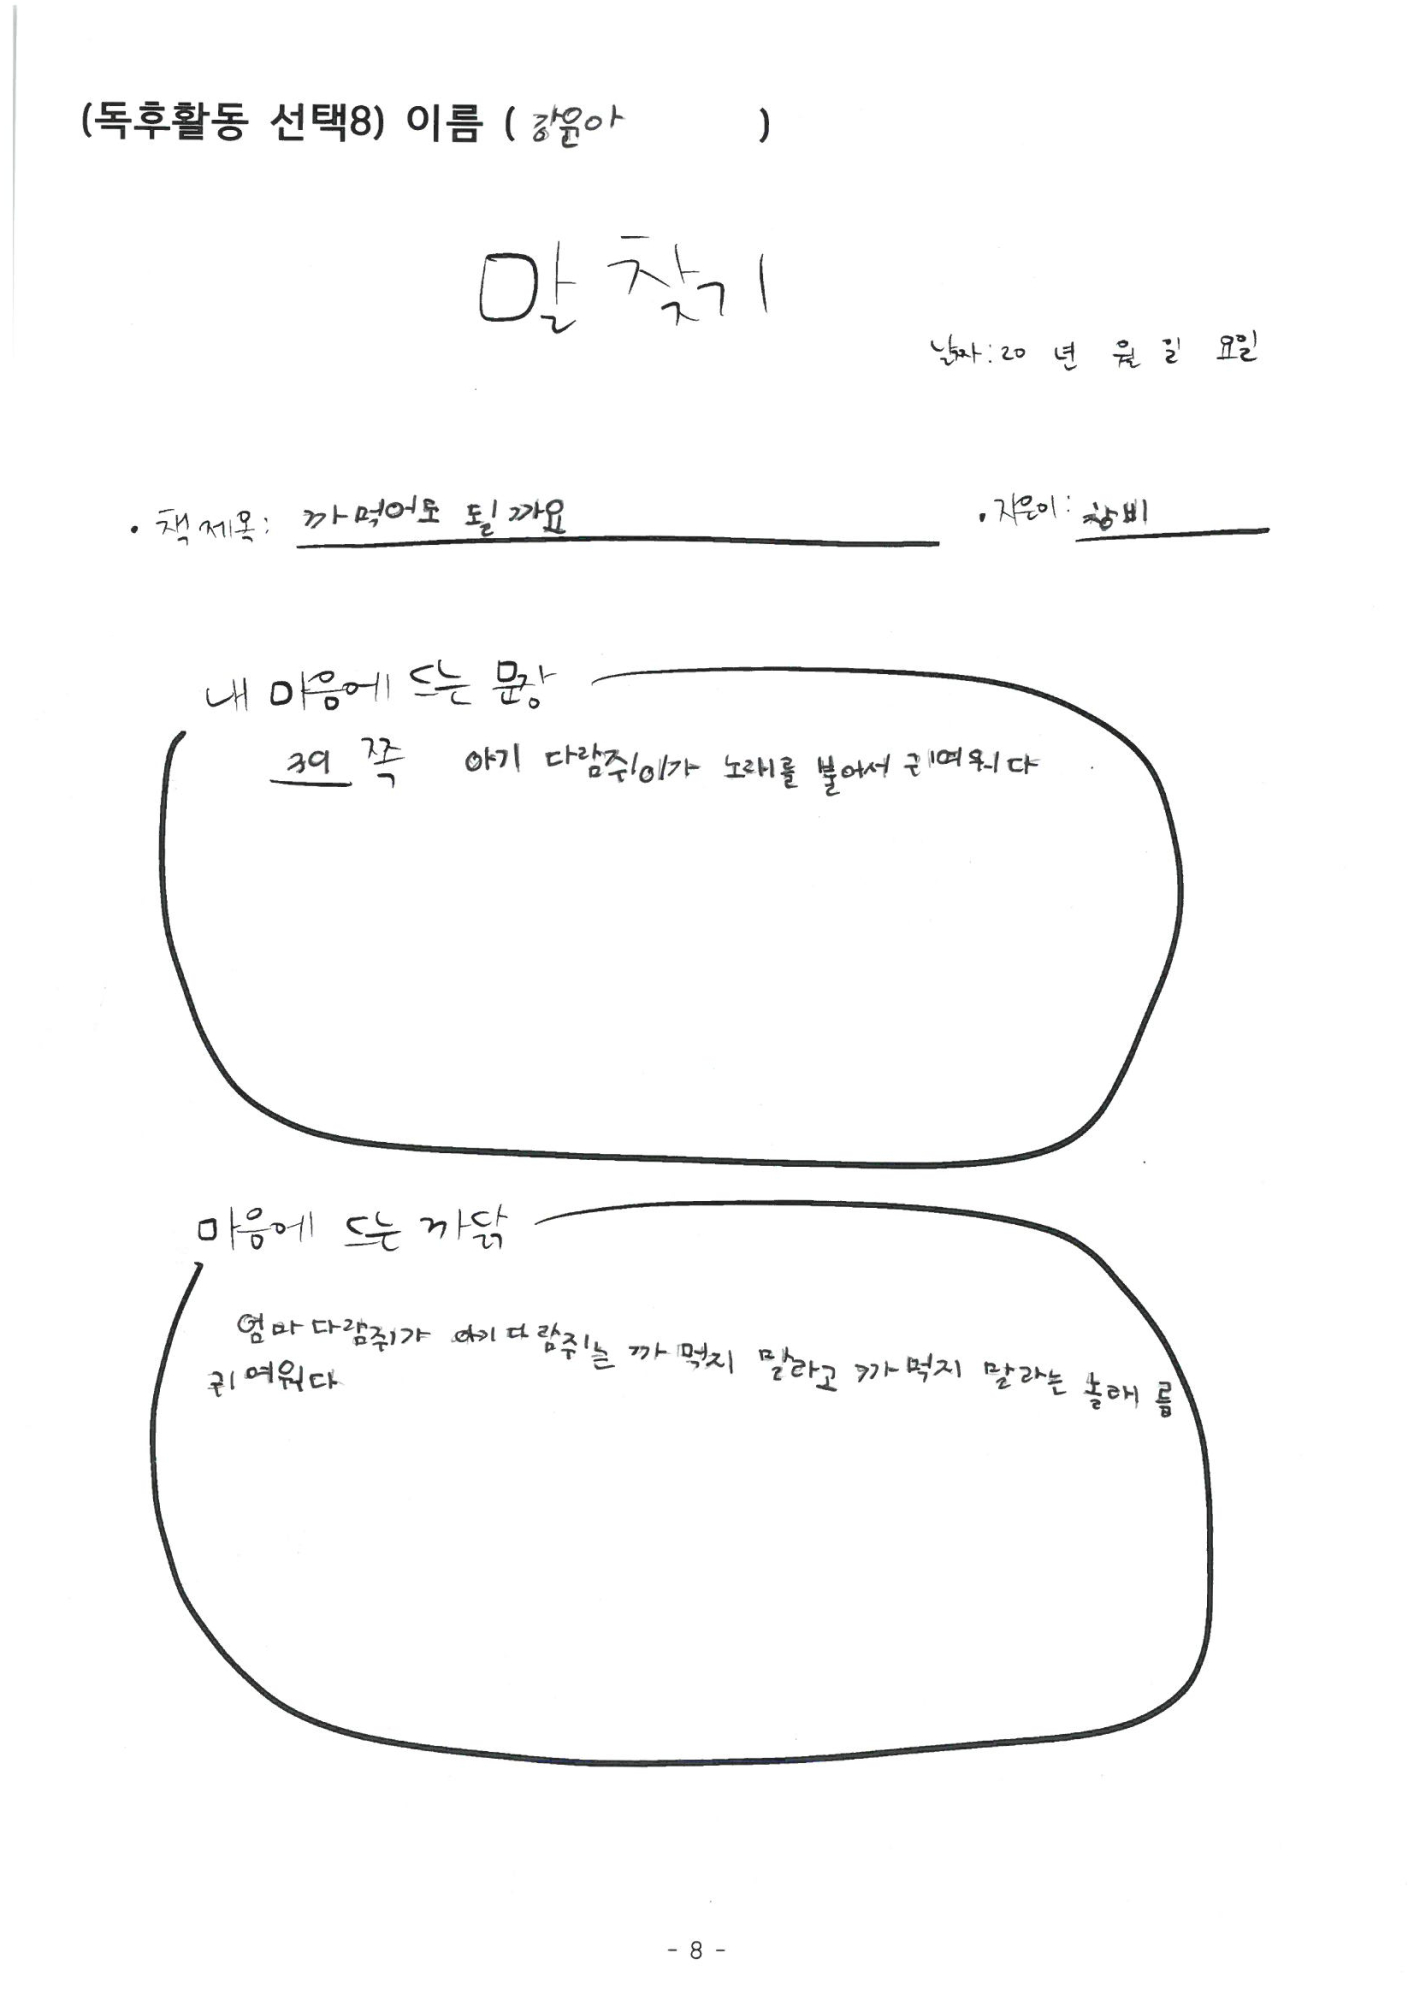 (독후활동 선택8) 이름 ( 강윤아 )
말 찾기
날짜: 20 년 월 일 요일
• 책 제목: 까먹어도 될까요 • 지은이: 창비
내 마음에 드는 문장
39 쪽 아기 다람쥐이가 노래를 불어서 귀여워다
마음에 드는 까닭
엄마다람쥐가 아기다람쥐는 까먹지 말라고 까먹지 말라는 놀래를
귀여워다
- 8 -